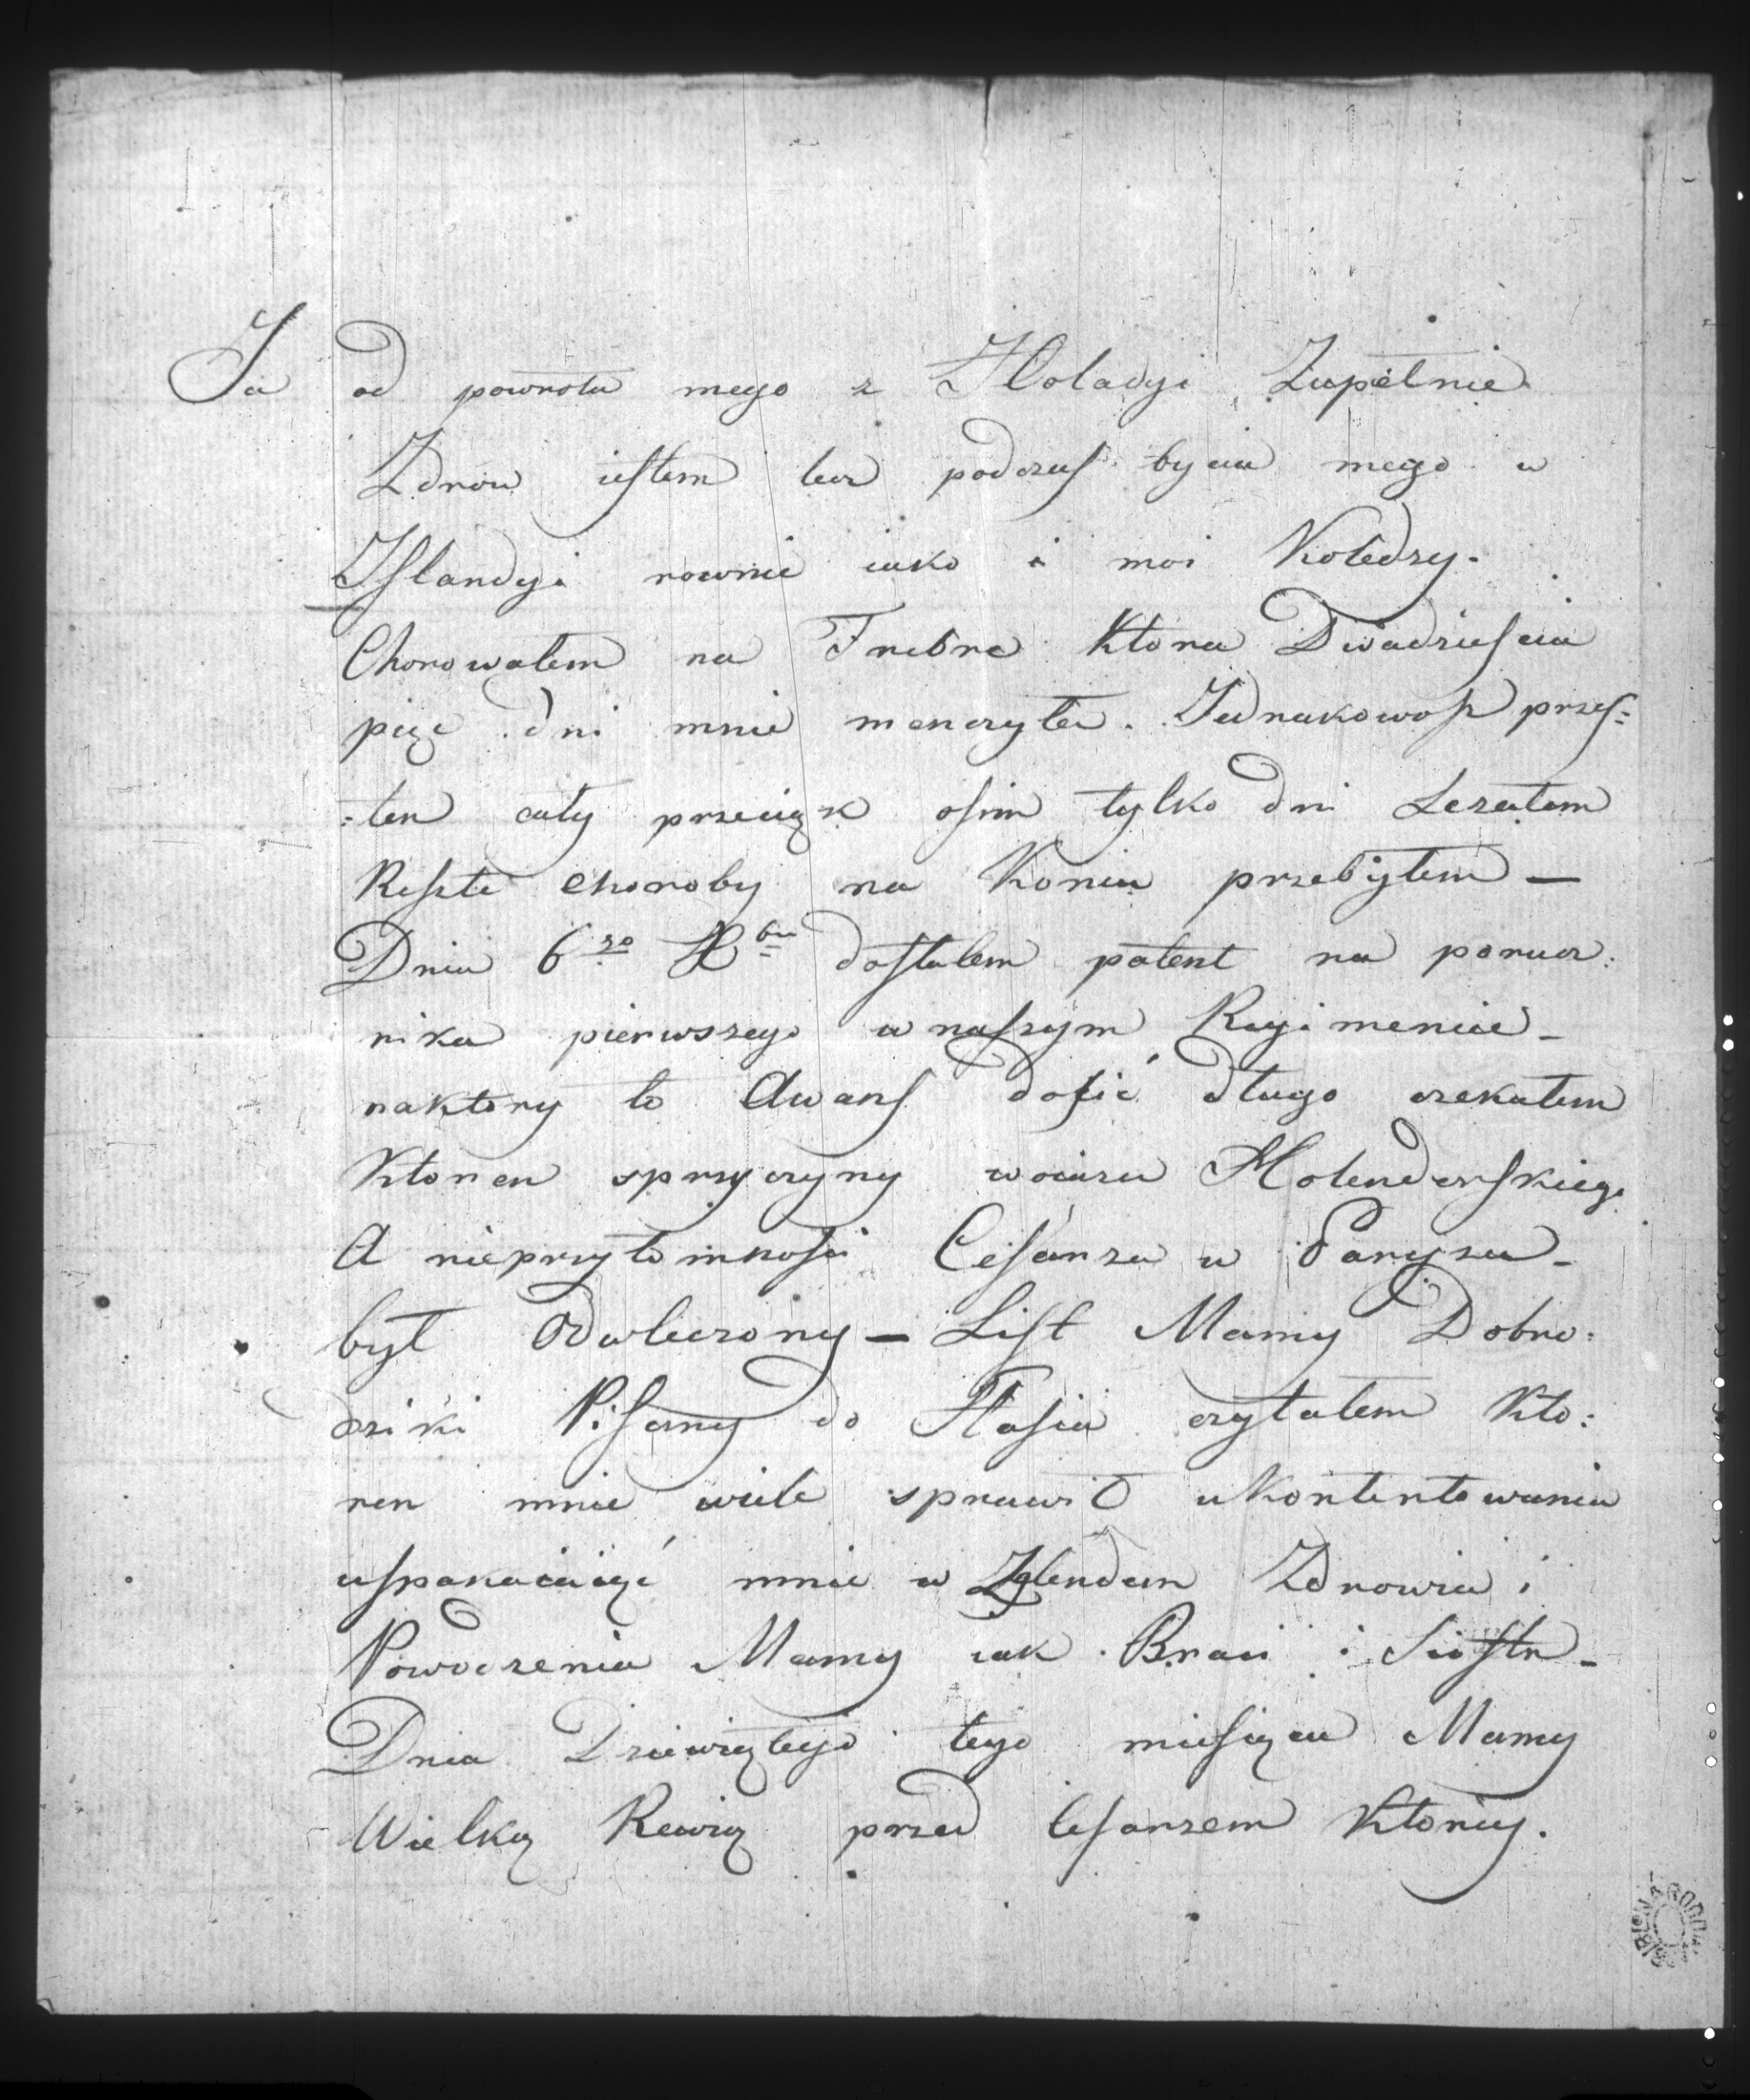 Ja od powrotu mego z Holadyi Zupełnie
Zdrow iestem lecz podczas bycia mego w
Islandyi rownie iako i moi Koledzy.
Chorowałem na Frebre Ktora Dwadziescia
pięc dni mnie menczyła. Jednakowosz przes=
=ten cały przeciąg osim tylko dni Lezałem
Reszte choroby na Koniu przebyłem —
Dnia 6go Xbra dostałem patent na porucz:
nika pierwszego w naszym Regimencie –
naktory to Awans dosić długo czekałem
Ktoren sprzyczyny wociazu Holenderskiego
A nieprzytomnosci Cesarza w Paryzu –
był Odwleczony — List Mamy Dobro:
dziki Pisany do Stasia czytałem Kto:
ren mnie wiele sprawił ukontentowania
uspakaiaiąć mnie w Zglendem Zdrowia i
Powodzenia Mamy iak Braci i Siostr –
Dnia Dziewiątego tego miesiąca Mamy
Wielką Rewią przed Cesarzem Ktorey.